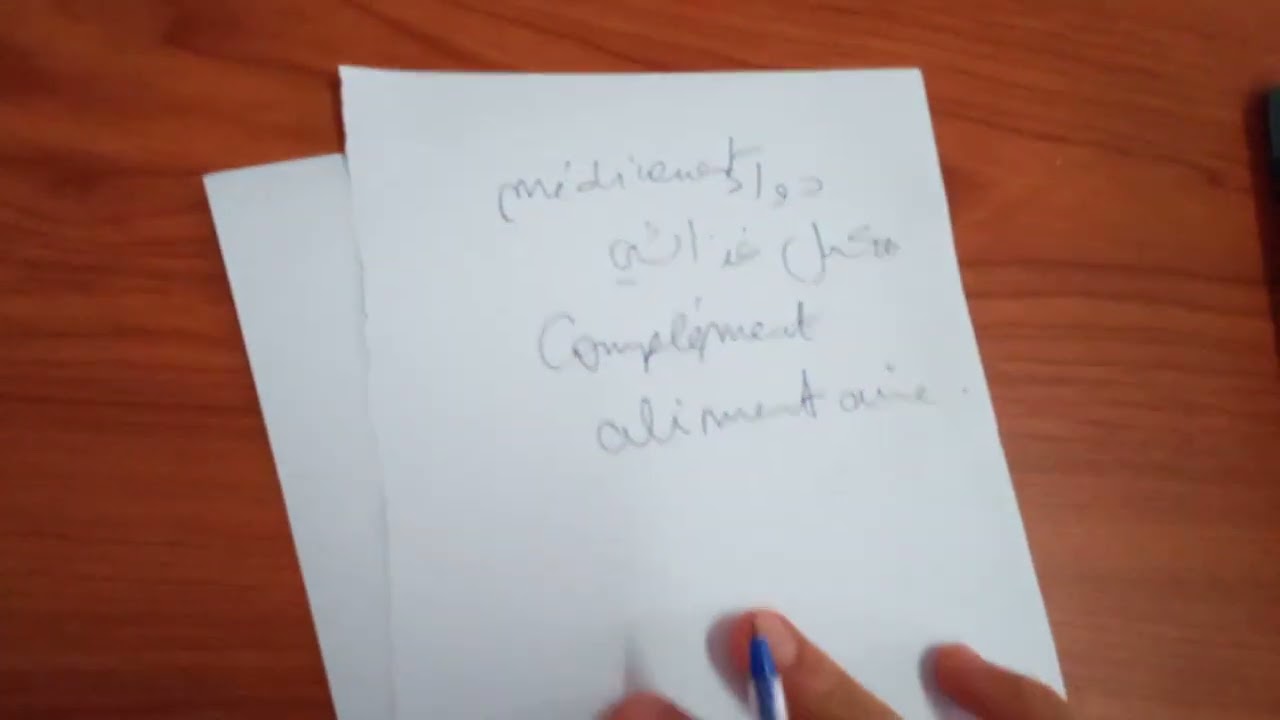 médicament دواء
مكمل غذائي
Complément
alimentaire.